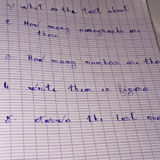 what is the text about
How many paragraphs are there
How many numbers are the
4 write them in figure
5. the last num